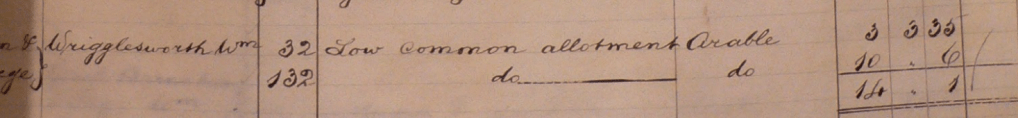 n & } Wrigglesworth Wm 32 Low Common allotment Arable 3 3 35
ege } 132 do do 10 . 6
14 . 1